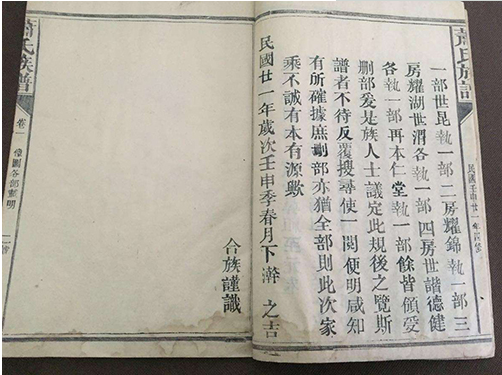 氏族譜
民國壬申廿一年
一部世昆執一部二房耀錦執一部三
房耀湖世渭各執一部四房世諧德健
各執一部再本仁堂執一部餘皆領受
刪部爰是族人士議定此規後之覽斯
譜者不待反覆搜尋使一閱便明咸知
有所確據庶刪部亦猶全部則此次家
乘不誠有本有源歟
民國廿一年歲次壬申季春月下澣 之吉
合族謹識
氏族譜
卷一
圖各部